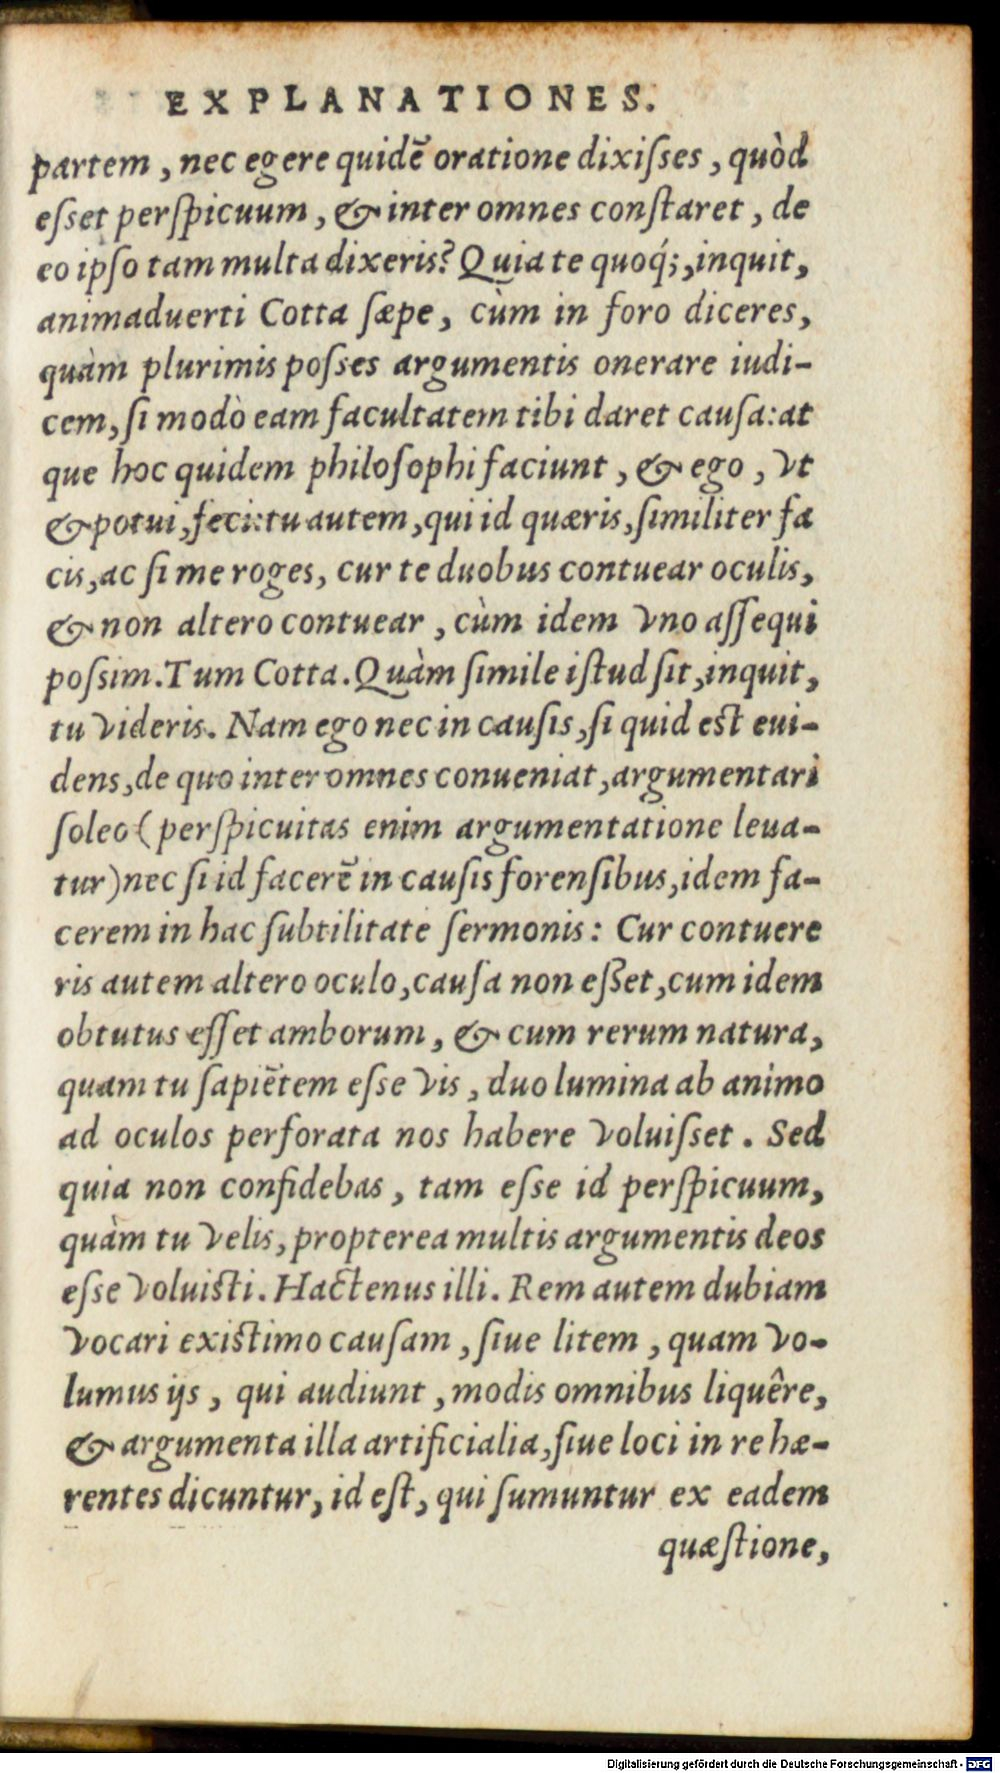 EXPLANATIONES.
partem, nec egere quidē oratione dixiſses, quòd
eſset perſpicuum, & inter omnes conſtaret, de
eo ipſo tam multa dixeris? Quia te quoq́;, inquit,
animaduerti Cotta ſæpe, cùm in foro diceres,
quàm plurimis poſses argumentis onerare iudi-
cem, ſi modò eam facultatem tibi daret cauſa: at
que hoc quidem philoſophi faciunt, & ego, vt
& potui, feci: tu autem, qui id quæris, ſimiliter fa
cis, ac ſi me roges, cur te duobus contuear oculis,
& non altero contuear, cùm idem vno aſſequi
poſsim. Tum Cotta. Quàm ſimile iſtud ſit, inquit,
tu videris. Nam ego nec in cauſis, ſi quid eſt eui-
dens, de quo inter omnes conueniat, argumentari
ſoleo (perſpicuitas enim argumentatione leua-
tur) nec ſi id facerē in cauſis forenſibus, idem fa-
cerem in hac ſubtilitate ſermonis: Cur contuere
ris autem altero oculo, cauſa non eſset, cum idem
obtutus eſſet amborum, & cum rerum natura,
quam tu ſapiētem eſse vis, duo lumina ab animo
ad oculos perforata nos habere voluiſset. Sed
quia non confidebas, tam eſse id perſpicuum,
quàm tu velis, propterea multis argumentis deos
eſse voluiſti. Hactenus illi. Rem autem dubiam
vocari exiſtimo cauſam, ſiue litem, quam vo-
lumus ijs, qui audiunt, modis omnibus liquêre,
& argumenta illa artificialia, ſiue loci in re hæ-
rentes dicuntur, id eſt, qui ſumuntur ex eadem
quæſtione,
Digitalisierung gefördert durch die Deutsche Forschungsgemeinschaft - DFG